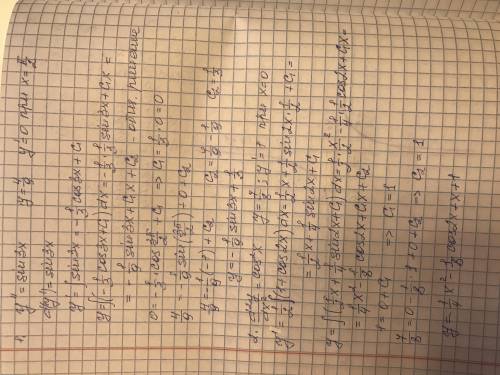 1. y'' = sin3x   y = 4/9   y' = 0 при x = π/2
d(y') = sin3x
y' = ∫sin3x = -1/3 cos3x + C₁
y = ∫(-1/3 cos3x + C₁)dx = -1/3 · 1/3 sin3x + C₁x =
= -1/9 sin3x + C₁x + C₂ - общ. решение
0 = -1/3 cos 3π/2 + C₁ => C₁ = 1/3 · 0 = 0
4/9 = -1/9 sin(3π/2) + 0 + C₂
4/9 = -1/9(-1) + C₂   C₂ = 4/9 - 1/9   C₂ = 1/3
y = -1/9 sin3x + 1/3
2. = cos²x   y = 7/8; y' = 1 при x = 0
y' = 1/2∫(1 + cos2x)dx = 1/2 x + 1/2 sin2x · 1/2 + C₁ =
= 1/2 x + 1/4 sin2x + C₁
y = ∫(1/2 x + 1/4 sin2x + C₁)dx = 1/2 · x²/2 - 1/4 · 1/2 cos2x + C₁x =
= 1/4 x² - 1/8 cos2x + C₁x + C₂
1 = 0 + C₁ => C₁ = 1
7/8 = 0 - 1/8 · 1 + 0 + C₂ => C₂ = 1
y = 1/4 x² - 1/8 cos2x + x + 1